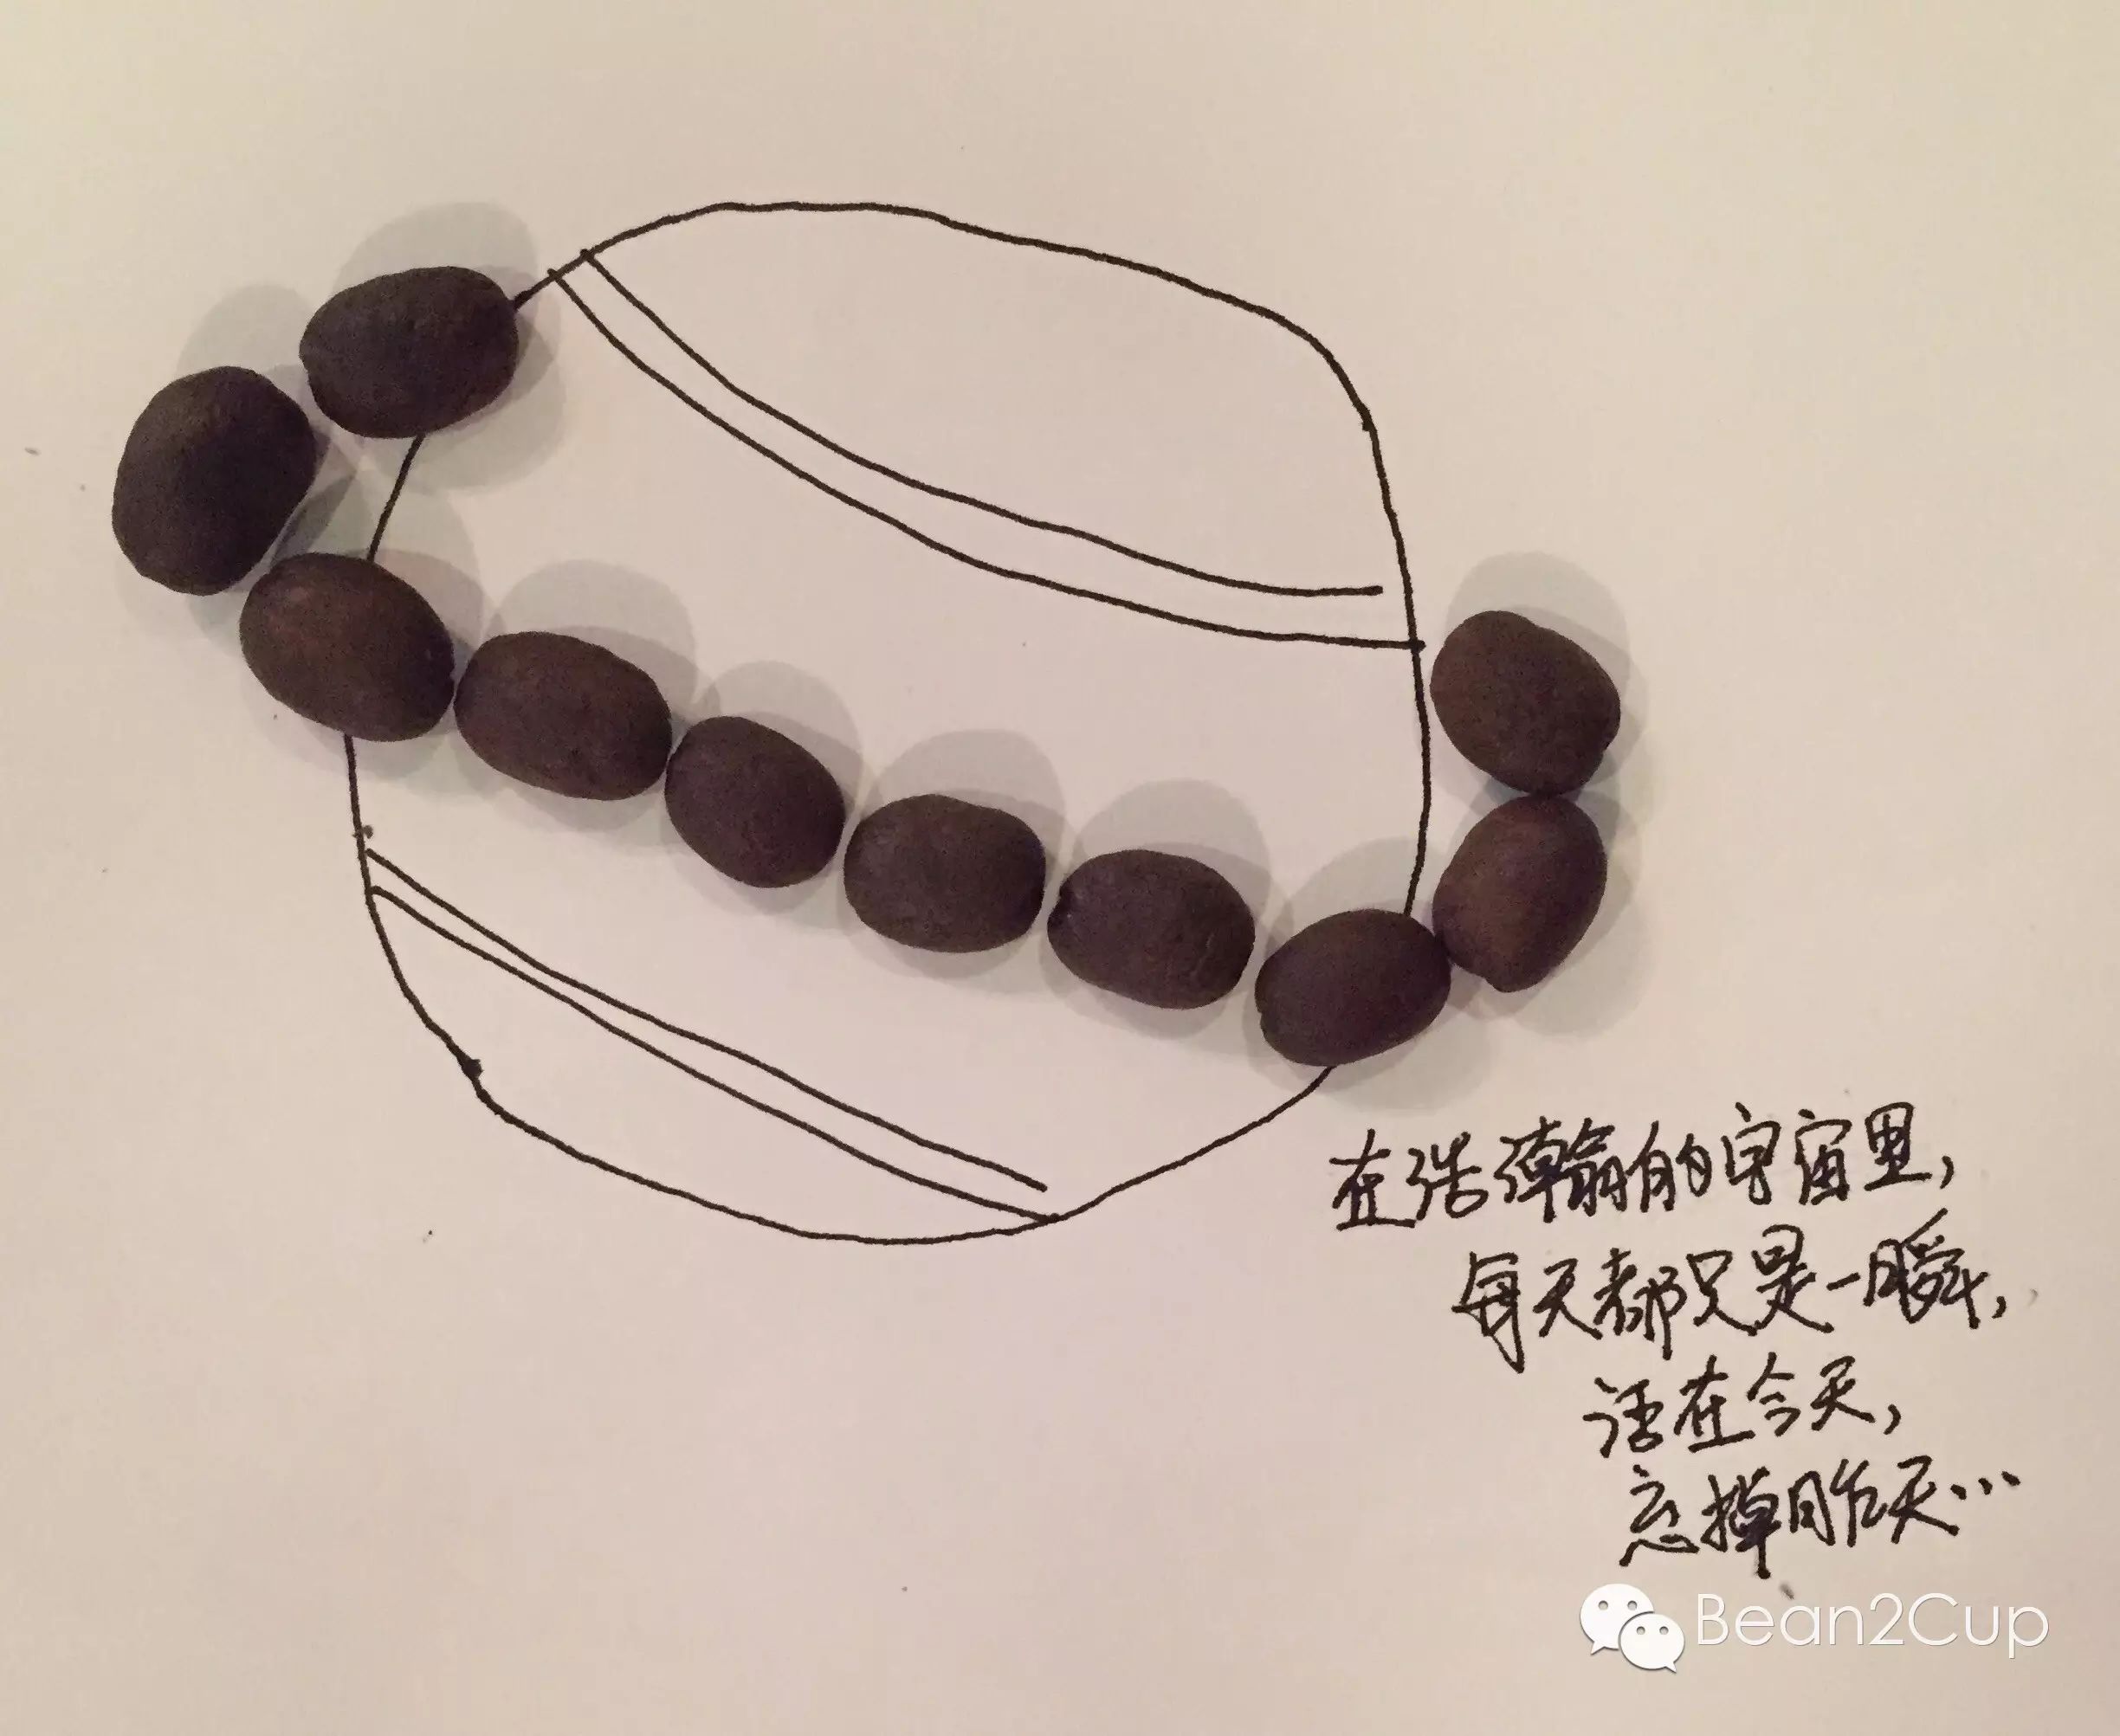 在浩瀚的宇宙里，
每天都只是一瞬，
活在今天，
忘掉昨天…
Bean2Cup